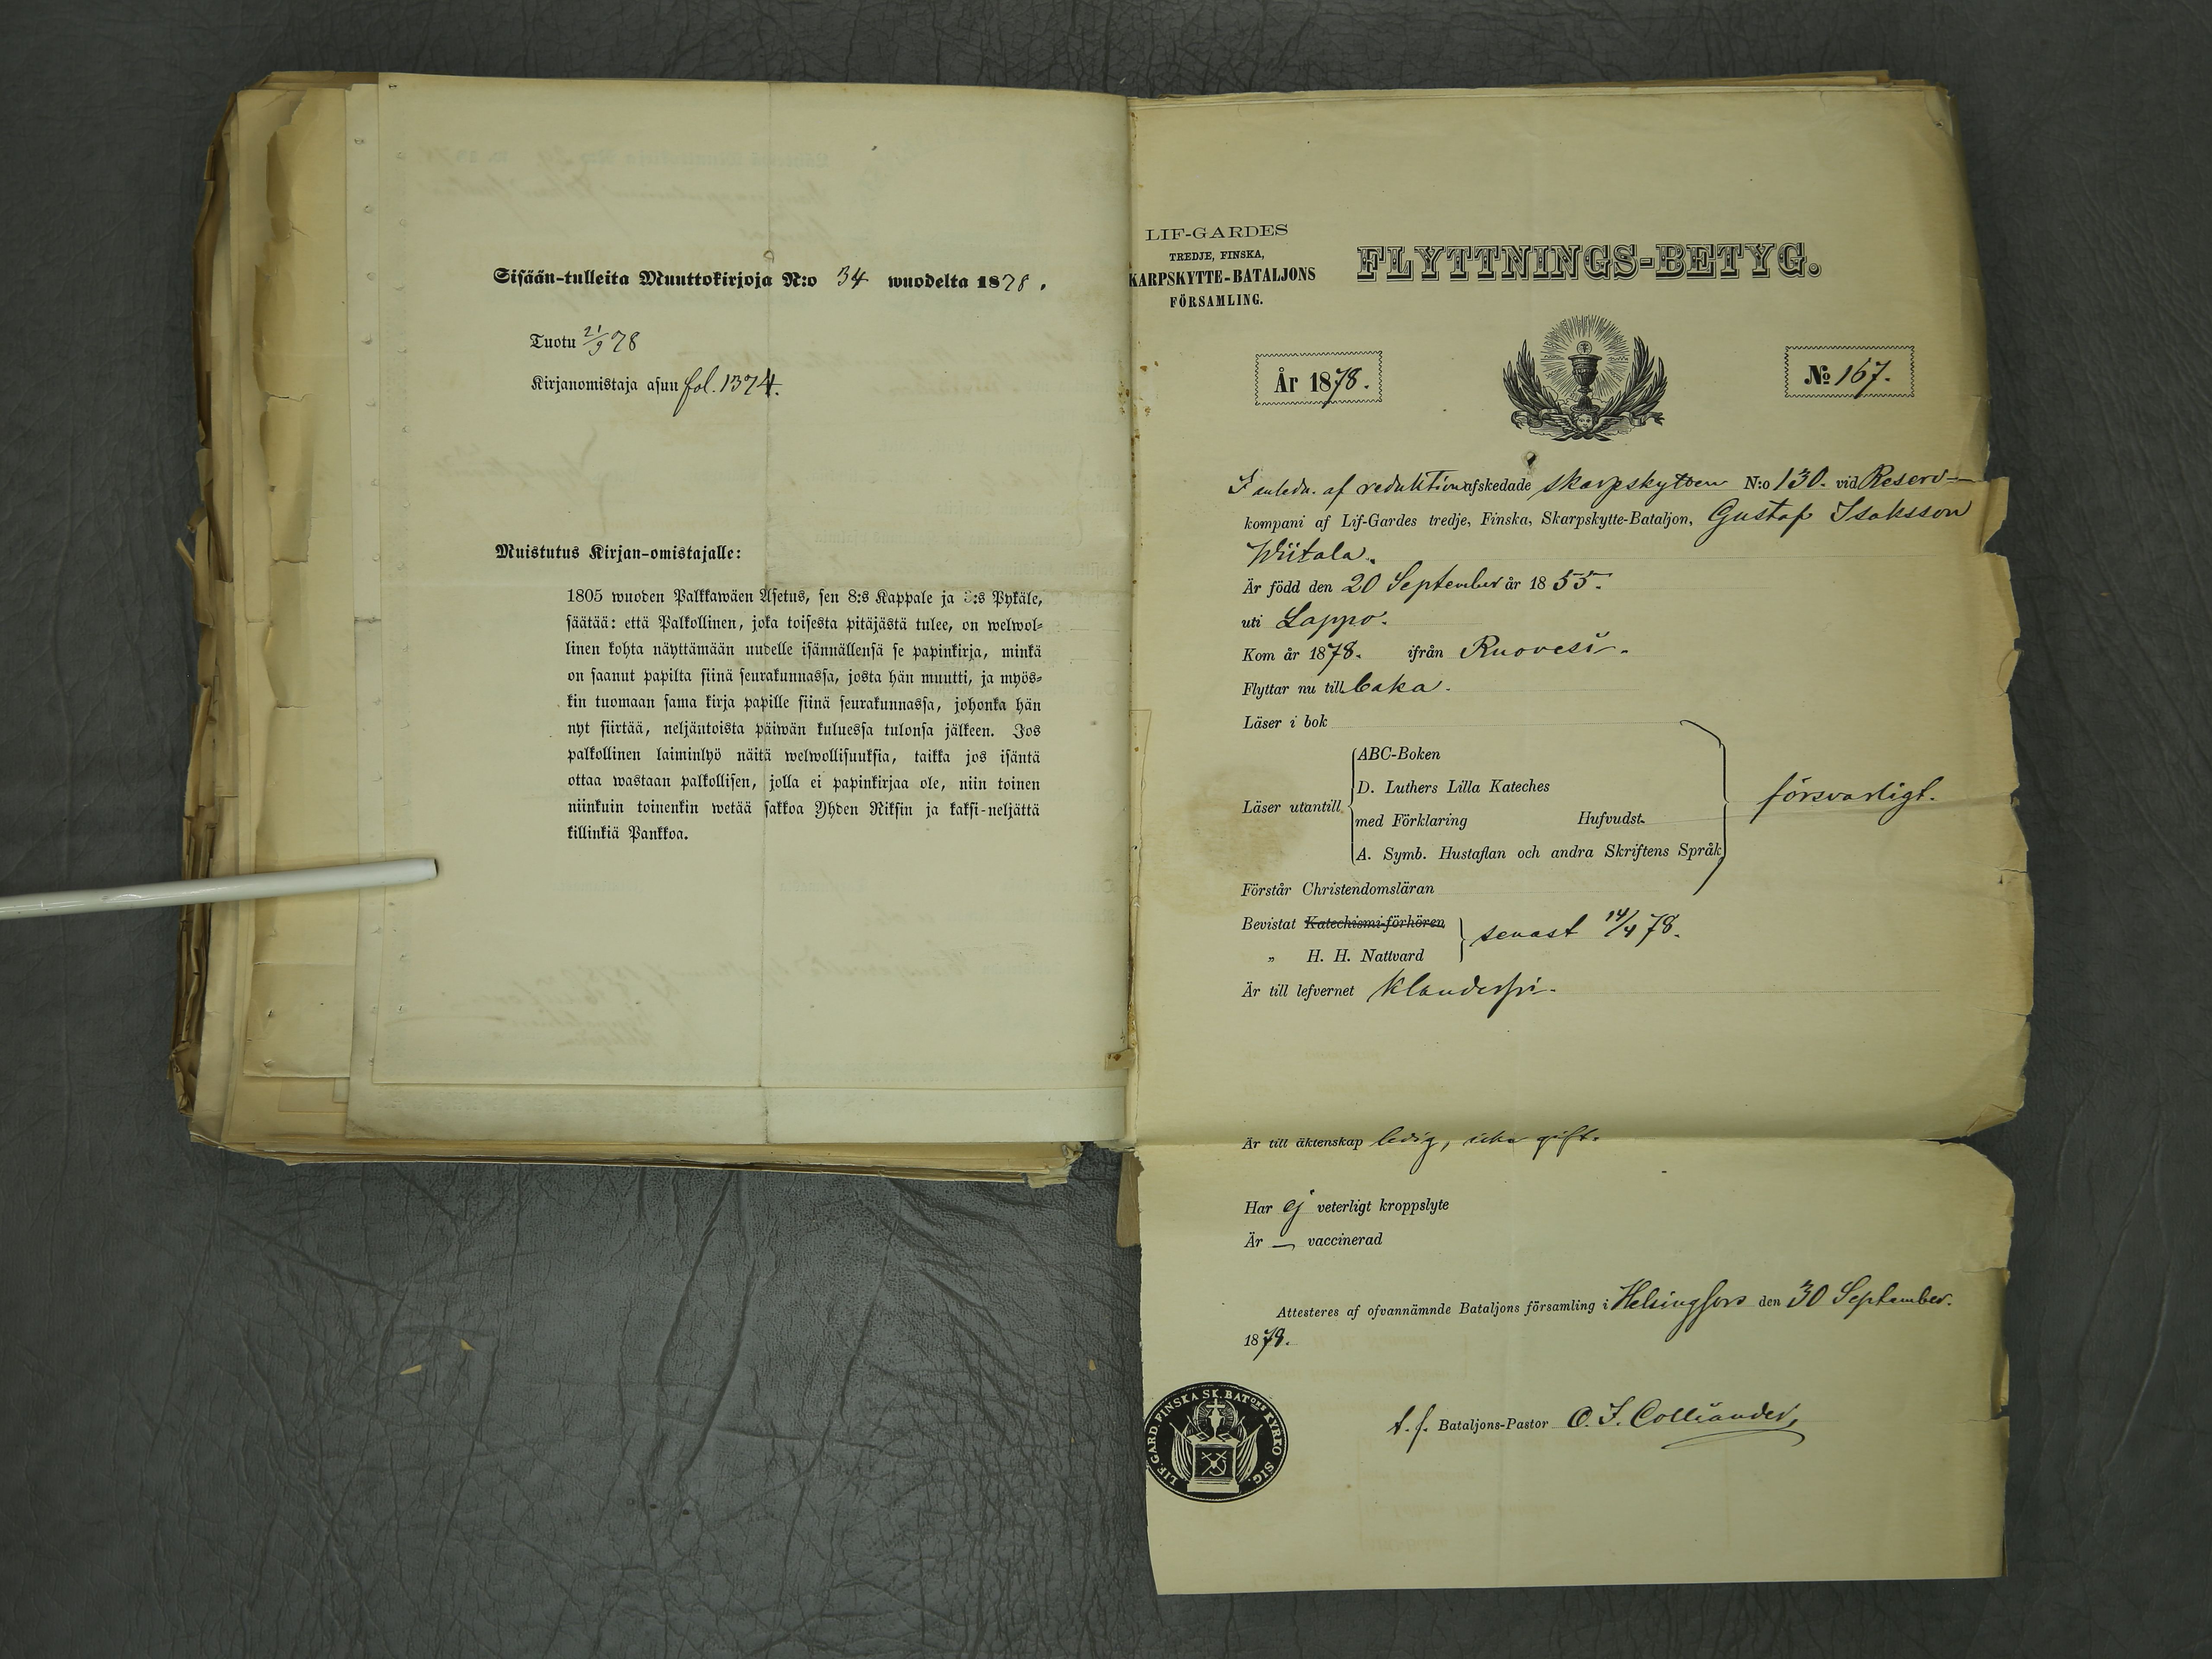 Sisään-tulleita Muuttokirjoja N:o 34 wuodelta 1878.
Tuotu 21/9 78
Kirjanomistaja asuu fol. 1374.
Muistutus Kirjan-omistajalle:
1805 wuoden Palkkawäen Asetus, sen 8:s Kappale ja 3:s Pykäle,
säätää: että Palkollinen, joka toisesta pitäjästä tulee, on welwol-
linen kohta näyttämään uudelle isännällensä se papinkirja, minkä
on saanut papilta siinä seurakunnassa, josta hän muutti, ja myös-
kin tuomaan sama kirja papille siinä seurakunnassa, johonka hän
nyt siirtää, neljäntoista päiwän kuluessa tulonsa jälkeen. Jos
palkollinen laiminlyö näitä welwollisuuksia, taikka jos isäntä
ottaa wastaan palkollisen, jolla ei papinkirjaa ole, niin toinen
niinkuin toinenkin wetää sakkoa Yhden Riksin ja kaksi-neljättä
killinkiä Pankkoa.
LIF-GARDES
TREDJE, FINSKA,
KARPSKYTTE-BATALJONS
FÖRSAMLING.
FLYTTNINGS-BETYG.
År 1878.
No 167.
I anledn. af reduktion afskedade skarpskytten N:o 130. vid Reserv-
kompani af Lif-Gardes tredje, Finska, Skarpskytte-Bataljon, Gustaf Isaksson
Wiitala.
Är född den 20 September år 1855.
uti Lappo.
Kom år 1878. ifrån Ruovesi.
Flyttar nu till
Läser i bok
Läser utantill
ABC-Boken
D. Luthers Lilla Kateches
med Förklaring Hufvudst.
A. Symb. Hustaflan och andra Skriftens Språk
försvarligt.
Förstår Christendomsläran
Bevistat Katechismi-förhören
„ H. H. Nattvard
senast 14/4 78.
Är till lefvernet klanderfri.
Är till äktenskap ledig, icke gift.
Har ej veterligt kroppslyte
Är — vaccinerad
Attesteres af ofvannämnde Bataljons församling i Helsingfors den 30 September.
1878.
t. f. Bataljons-Pastor O. I. Colliander,
LIF.GARD.FINSKA SK.BATONS KYRKO SIG.